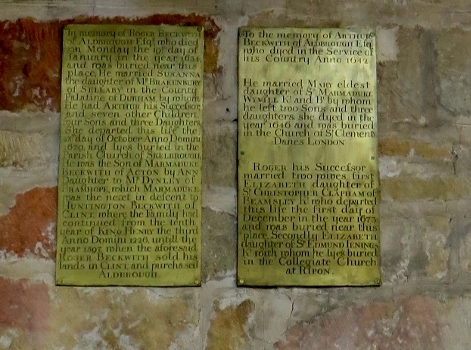 In memory of Roger Beckwith
of Aldbrough Esqr. who died
on Monday the 19th of
January in the year
and was buried near this
place. He married Susanna
daughter of Mr. Brakenbury
of Sellaby in the County
Palatine of Durham by whom
he had Arthur his Successor
and seven other Children
four Sons and three Daughters
She departed this life the
day of October Anno Domini
and lyes buried in the
Parish Church of
He was the Son of Marmaduke
Beckwith of Acton by Ann
daughter to Mr. Dynley of
Bramhope, which Marmaduke
was the next in descent to
Huntington Beckwith of
Clint where the Family had
continued from the tenth
year of King Henry the third
Anno Domini 1226 until the
year 1597 when the aforesaid
Roger Beckwith sold his
lands in Clint and purchased
Aldbrough.
To the memory of Arthur
Beckwith of Aldbrough Esqr.
who died in the Service of
his Country Anno 1642
He married Mary eldest
daughter of Sr. Marmaduke
Wyvill Kt. and Bt. by whom
he left two Sons and three
daughters she dyed in the
year 1646 and was buried
in the Church of St Clement
Danes London
Roger his Successor
married two wives, first
Elizabeth daughter of
Sr. Christopher Clapham of
Beamsley Kt. who departed
this life the first day of
December in the year 1673
and was buried near this
place, Secondly Elizabeth
daughter of Sr. Edmund Jenings
Kt. with whom he lyes buried
in the Collegiate Church
at Ripon.